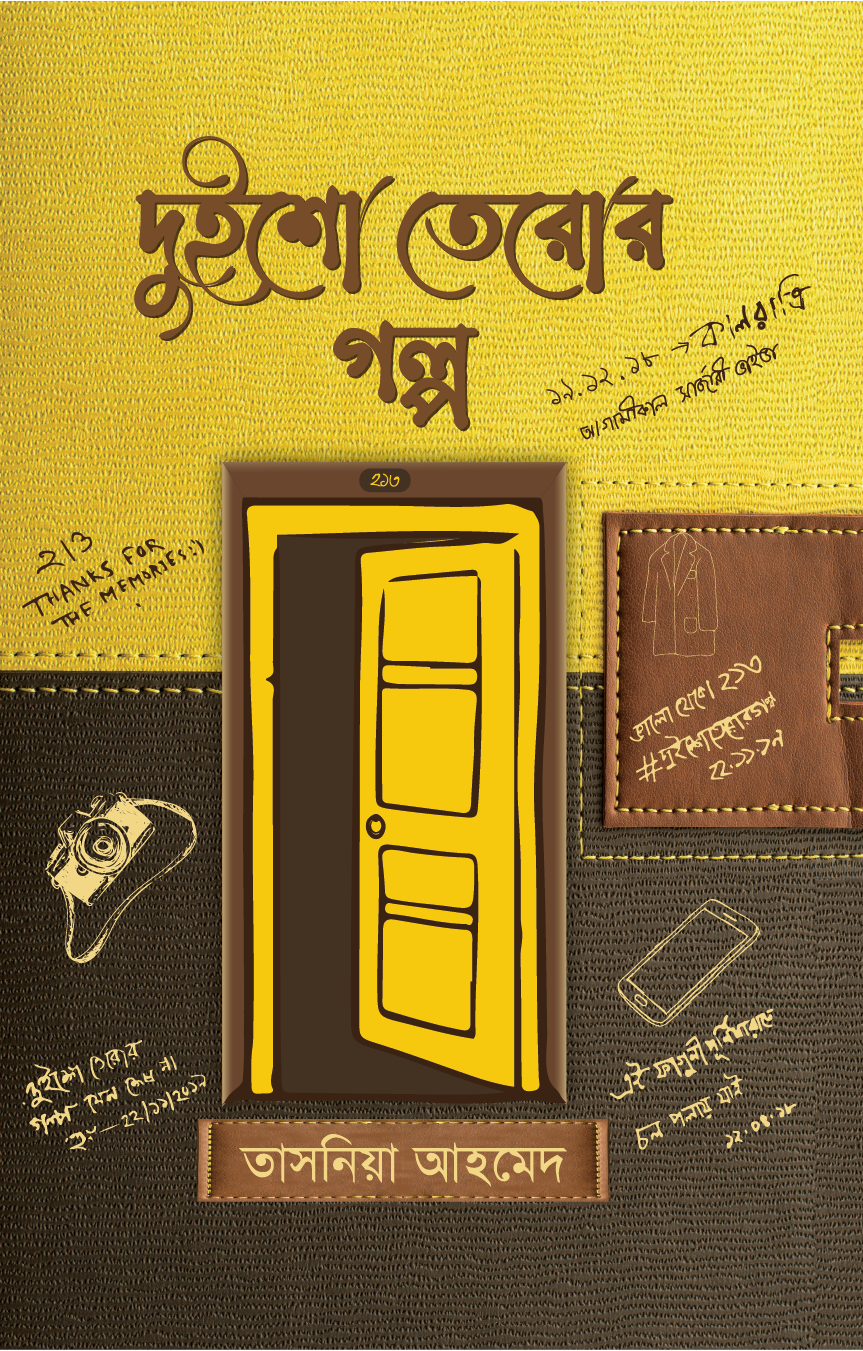 দুইশো তেরোর
গল্প
১৯.১২.১৮ → কালরাত্রি
আগামীকাল সার্জারী ভাইভা
২১৩
213
THANKS FOR
THE MEMORIES:)
ভালো থেকো ২১৩
#দুইশোতেরোরগল্প
২২.১১.১৭
দুইশো তেরোর
গল্প যেন শেষ না
হয় — ২২/১১/২০১৭
এই ফাগুনী পূর্ণিমারাতে
চল পলায় যাই
তাসনিয়া আহমেদ